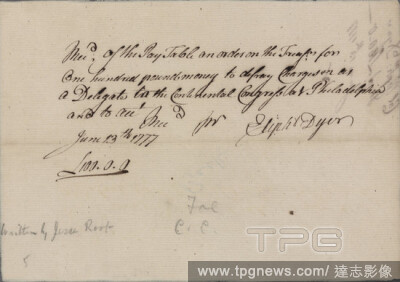 Rec.d of the Pay Table an order on the Treas.r for
One hundred pounds money to defray Charges on as
a Delegate to the Continental Congress at Philadelphia
and to acct. Rec.d pr Elipht Dyer
June 23.th 1777
£100.0.0
written by Jesse Root
C. C.
5
TPG
www.tpgnews.com | 達志影像